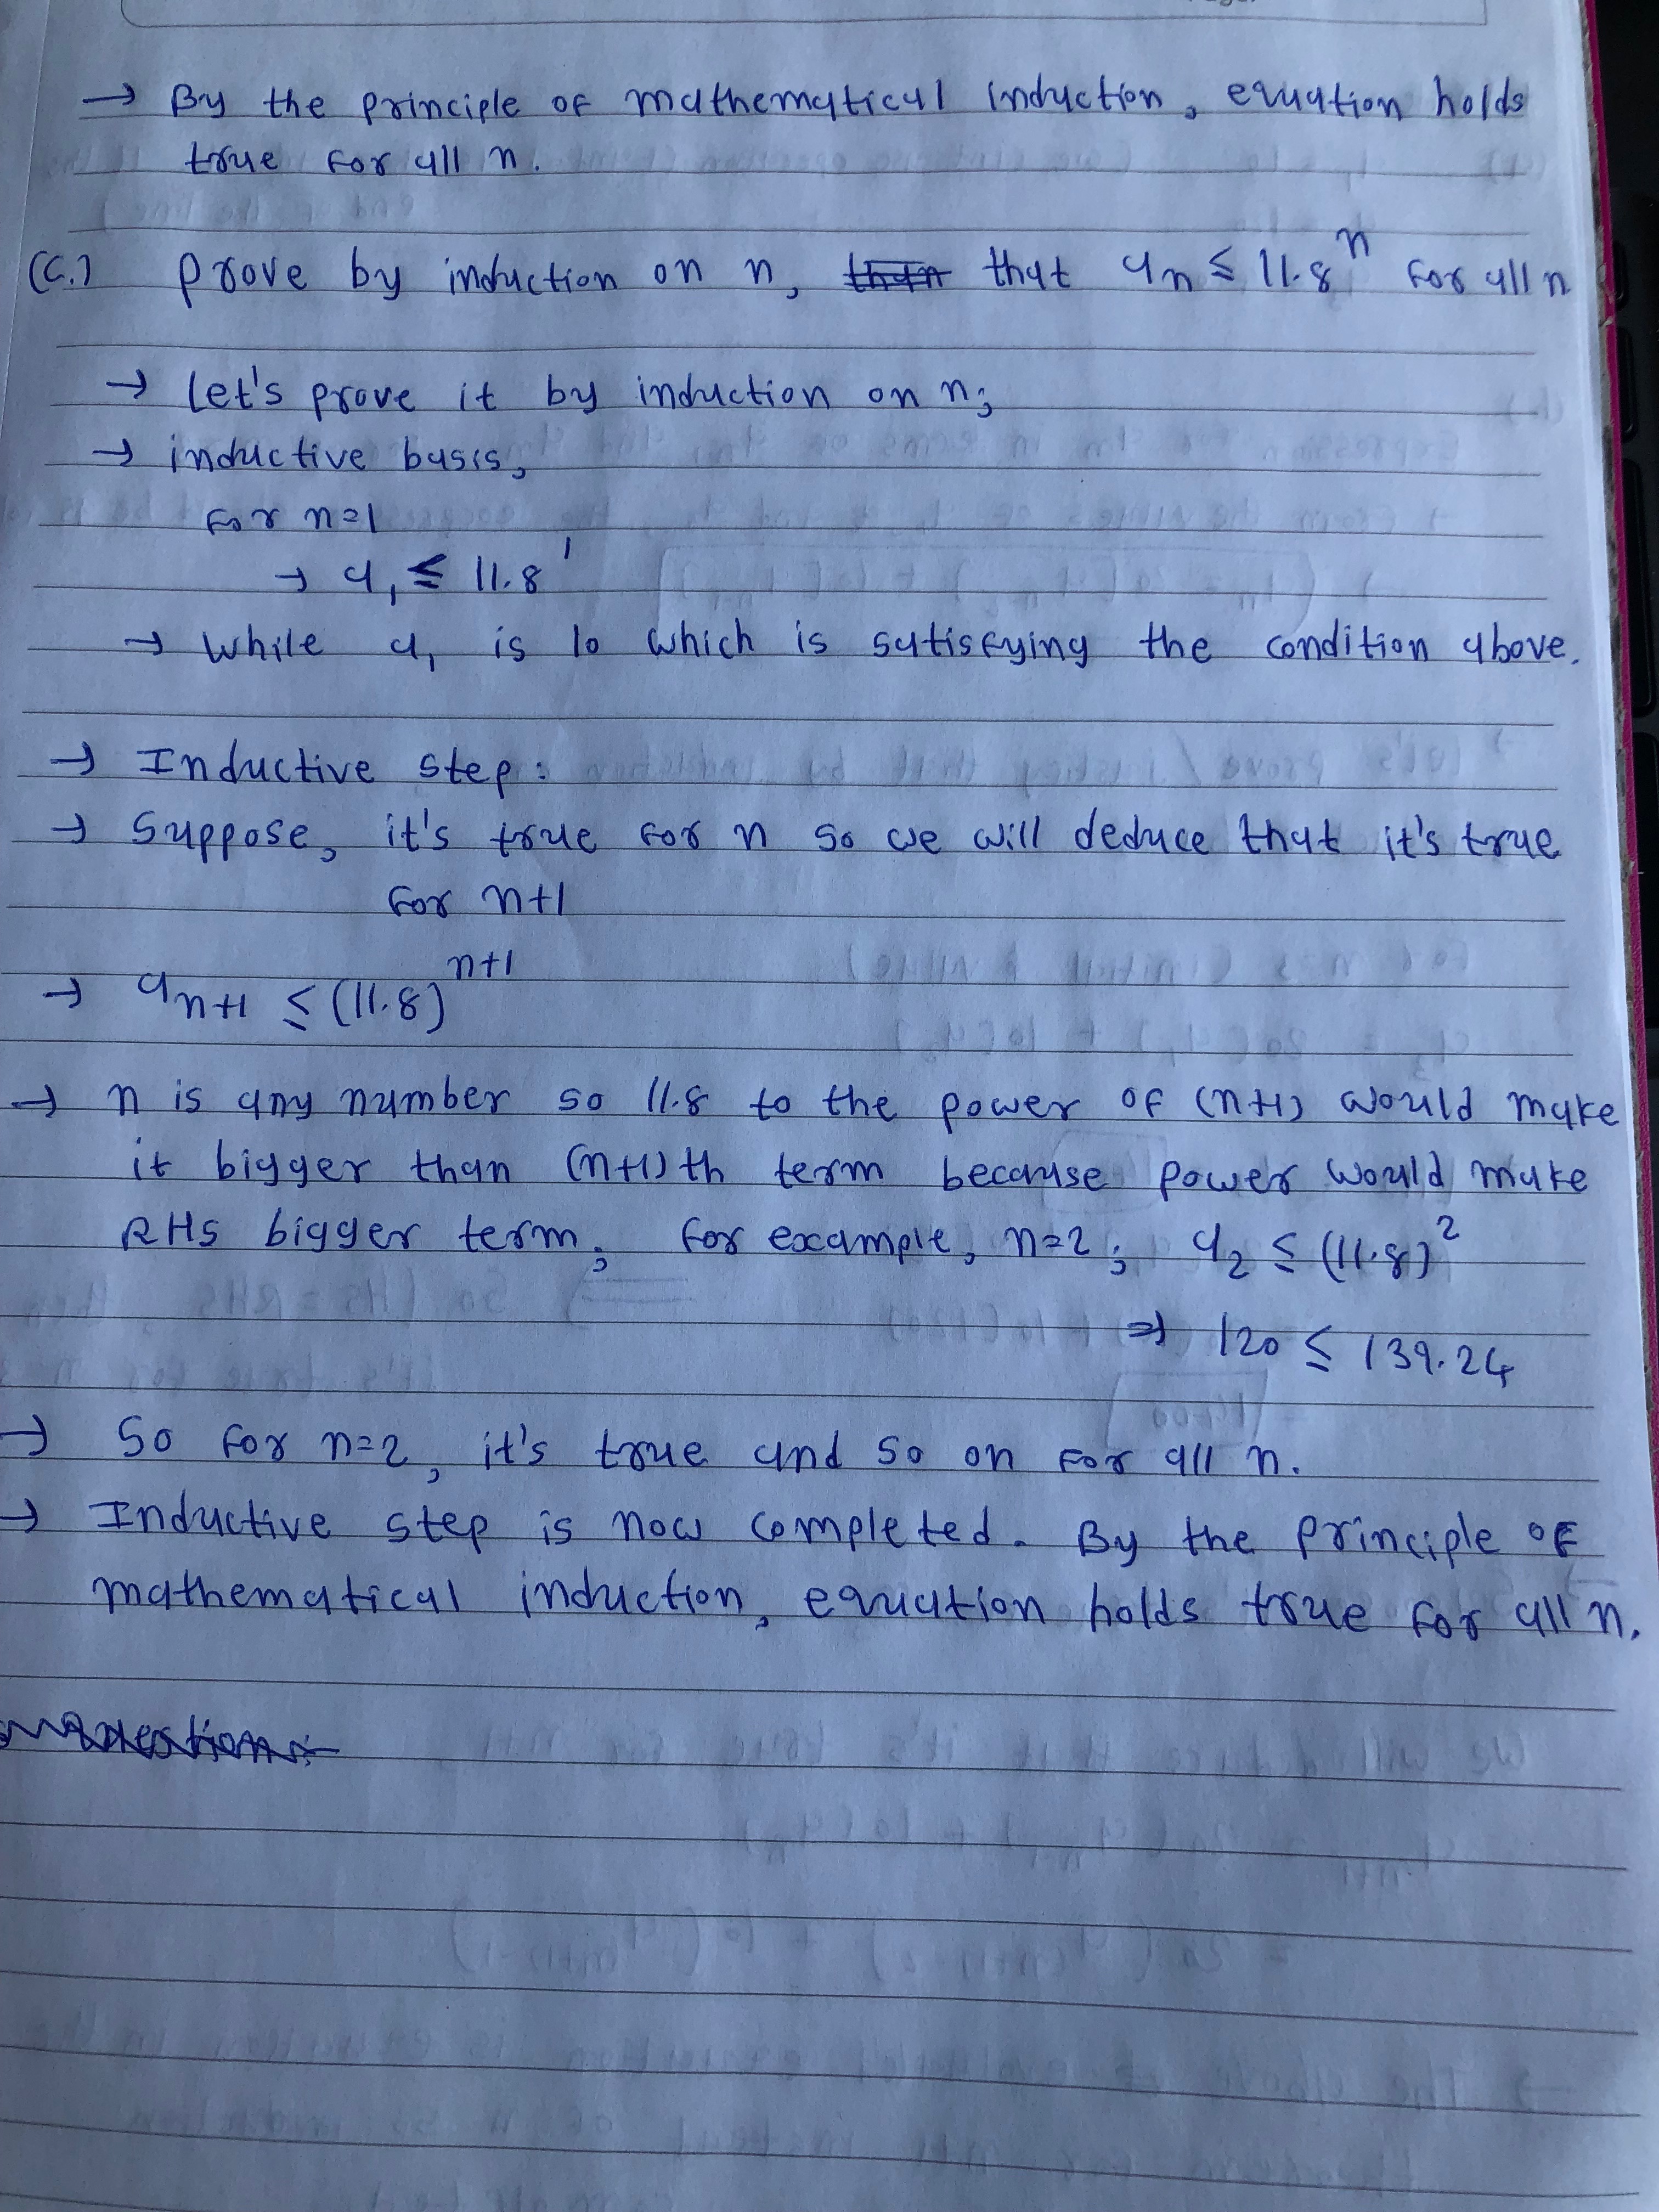 → By the principle of mathematical induction, equation holds
true for all n.
(C.) Prove by induction on n, that aₙ ≤ 11.8ⁿ for all n
→ Let's prove it by induction on n;
→ inductive basis,
for n=1
→ a₁ ≤ 11.8¹
→ While a₁ is 10 which is satisfying the condition above.
→ Inductive step:
→ Suppose, it's true for n so we will deduce that it's true
for n+1
→ aₙ₊₁ ≤ (11.8)ⁿ⁺¹
→ n is any number so 11.8 to the power of (n+1) would make
it bigger than (n+1)th term because power would make
RHS bigger term; for example, n=2; a₂ ≤ (11.8)²
⇒ 120 ≤ 139.24
→ So for n=2, it's true and so on for all n.
→ Inductive step is now completed. By the principle of
mathematical induction, equation holds true for all n.